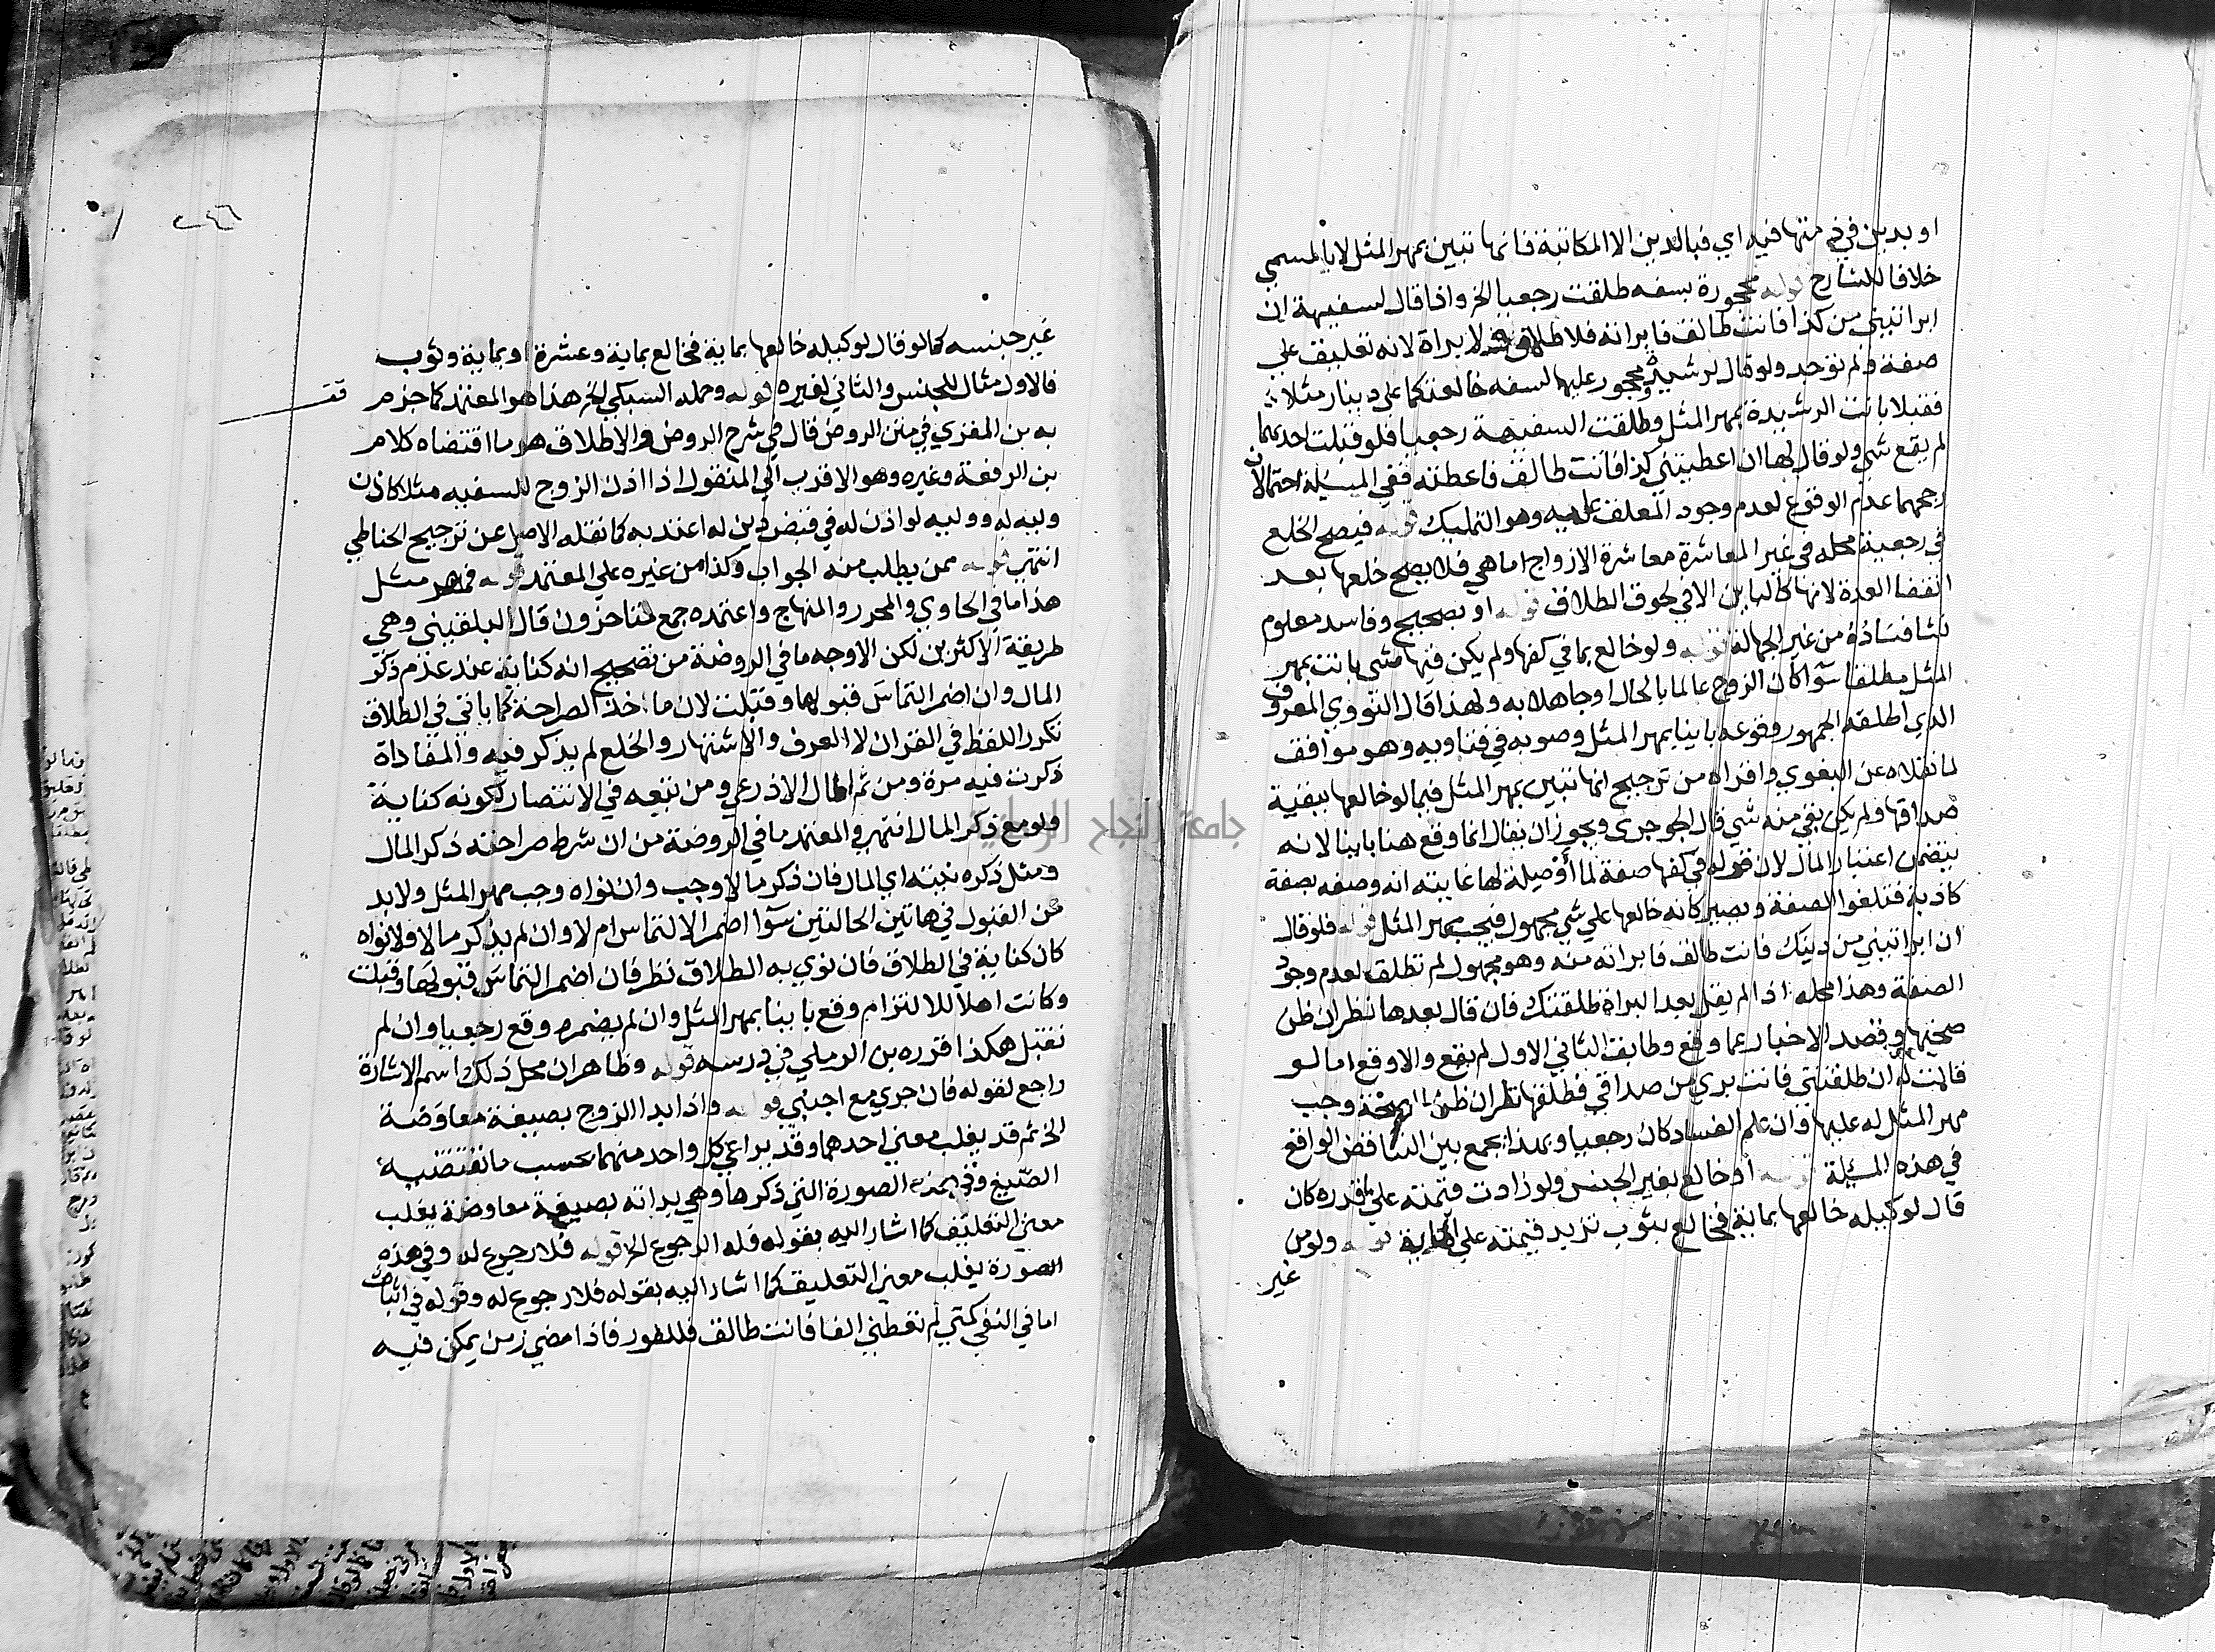 او بدين في ذمتها فيه اي فبالدين الا المكاتبة فانها تبين بمهر المثل لا بالمسمي
خلافا للشارح قوله محجورة بسفه طلقت رجعيا الخ واذا قال لسفيهة ان
ابراتيني من كذا فانت طالق فابراته فلا طلاق ولا براة لانه تعليق علي
صفة ولم توجد ولو قال لرشيدة ومحجور عليها لسفه خالعتكما علي دينار مثلا
فقبلا بانت الرشيدة بمهر المثل وطلقت السفيهة رجعيا فلو قبلت احديهما
لم يقع شي ولو قال لها ان اعطيتني كذا فانت طالق فاعطته ففي المسيلة احتمالان
رجحهما عدم الوقوع لعدم وجود المعلق عليه وهو التمليك قوله فيصح الخلع
في رجعية محله في غير المعاشرة معاشرة الازواج اما هي فلا يصح خلعها بعد
انقضا العدة لانها كالباين الا في لحوق الطلاق قوله او بصحيح وفاسد معلوم
نشا فساده من غير الجهالة قوله ولو خالع بما في كفها ولم يكن فيها شي بانت بمهر
المثل مطلقا سوآ كان الزوج عالما بالحال او جاهلا به ولهذا قال النووي المعروف
الذي اطلقه الجمهور وقوعه باينا بمهر المثل وصوبه في فتاويه وهو موافق
لما نقلاه عن البغوي واقراه من ترجيح انها تبين بمهر المثل فيما لو خالعها ببقية
صداقها ولم يكن بقي منه شي قال الجوجري ويجوز ان يقال انما وقع هنا باينا لانه
يتضمن اعتبار المال لان قوله في كفها صفة لما او صلة لها غايته انه وصفه بصفة
كاذبة فتلغوا الصفة ويصير كانه خالعها علي شي مجهول فيجب مهر المثل قوله فلو قال
ان ابراتيني من دينك فانت طالق فابراته منه وهو مجهول لم تطلق لعدم وجود
الصفة وهذا محله اذا لم يقل بعد البراة طلقتك فان قال بعدها نظر ان ظن
صحتها وقصد الاخبار عما وقع وطابق الثاني الاول لم يقع والا وقع اما لو
قالت له ان طلقتني فانت بري من صداقي فطلقها نظر ان ظن الصحة وجب
مهر المثل له عليها وان علم الفساد كان رجعيا وبهذا يجمع بين التناقض الواقع
في هذه المسيلة قوله او خالع بغير الجنس ولو زادت قيمته علي ما قدره كان
قال لوكيله خالعها بماية فخالع بثوب تزيد قيمته علي الماية قوله ولو من
غير
٢٤٦
غير جنسه كما لو قال لوكيله خالعها بماية فخالع بماية وعشرة او بماية وثوب
فالاول مثال للجنس والثاني لغيره قوله وحمله السبكي الخ هذا هو المعتمد كما جزم
به بن المقري في متن الروض قال في شرح الروض والاطلاق هو ما اقتضاه كلام
بن الرفعة وغيره وهو الاقرب الي المنقول اذا اذن الزوج للسفيه مثلا كاذن
وليه له ووليه لو اذن له في قبض دين له اعتد به كما نقله الاصل عن ترجيح الحناطي
انتهي قوله ممن يطلب منه الجواب وكذا من غيره علي المعتمد قوله فمهر مثل
هذا ما في الحاوي والمحرر والمنهاج واعتمده جمع متاخرون قال البلقيني وهي
طريقة الاكثرين لكن الاوجه ما في الروضة من تصحيح انه كناية عند عدم ذكر
المال وان اضمر التماس قبولها وقبلت لان ماخذ الصراحة كما ياتي في الطلاق
تكرر اللفظ في القران لا العرف والاشتهار والخلع لم يذكر فيه والمفاداة
ذكرت فيه مرة ومن ثم اطال الاذرعي ومن تبعه في الانتصار لكونه كناية
ولو مع ذكر المال انتهي والمعتمد ما في الروضة من ان شرط صراحته ذكر المال
ومثل ذكره نيته اي المال فان ذكر مالا وجب وان نواه وجب مهر المثل ولا بد
من القبول في هاتين الحالتين سوآ اضمر الالتماس ام لا وان لم يذكر مالا ولا نواه
كان كناية في الطلاق فان نوي به الطلاق نظر فان اضمر التماس قبولها وقبلت
وكانت اهلا للالتزام وقع باينا بمهر المثل وان لم يضمره وقع رجعيا وان لم
تقبل هكذا قرره بن الرملي في درسه قوله وظاهر ان محل ذلك اسم الاشارة
راجع لقوله فان جري مع اجنبي قوله واذا بدا الزوج بصيغة معاوضة
الخ ثم قد يغلب معني احدهما وقد يراعي كل واحد منهما بحسب ما تقتضيه
الصيغ وفي هذه الصورة التي ذكرها وهي بداته بصيغة معاوضة يغلب
معني التعليق كما اشار اليه بقوله فله الرجوع الخ قوله فلا رجوع له وفي هذه
الصورة يغلب معني التعليق كما اشار اليه بقوله فلا رجوع له وقوله في اثبات
اما في النفي كمتي لم تعطني الفا فانت طالق فللفور فاذا مضي زمن يمكن فيه
جامعة النجاح الوطنية